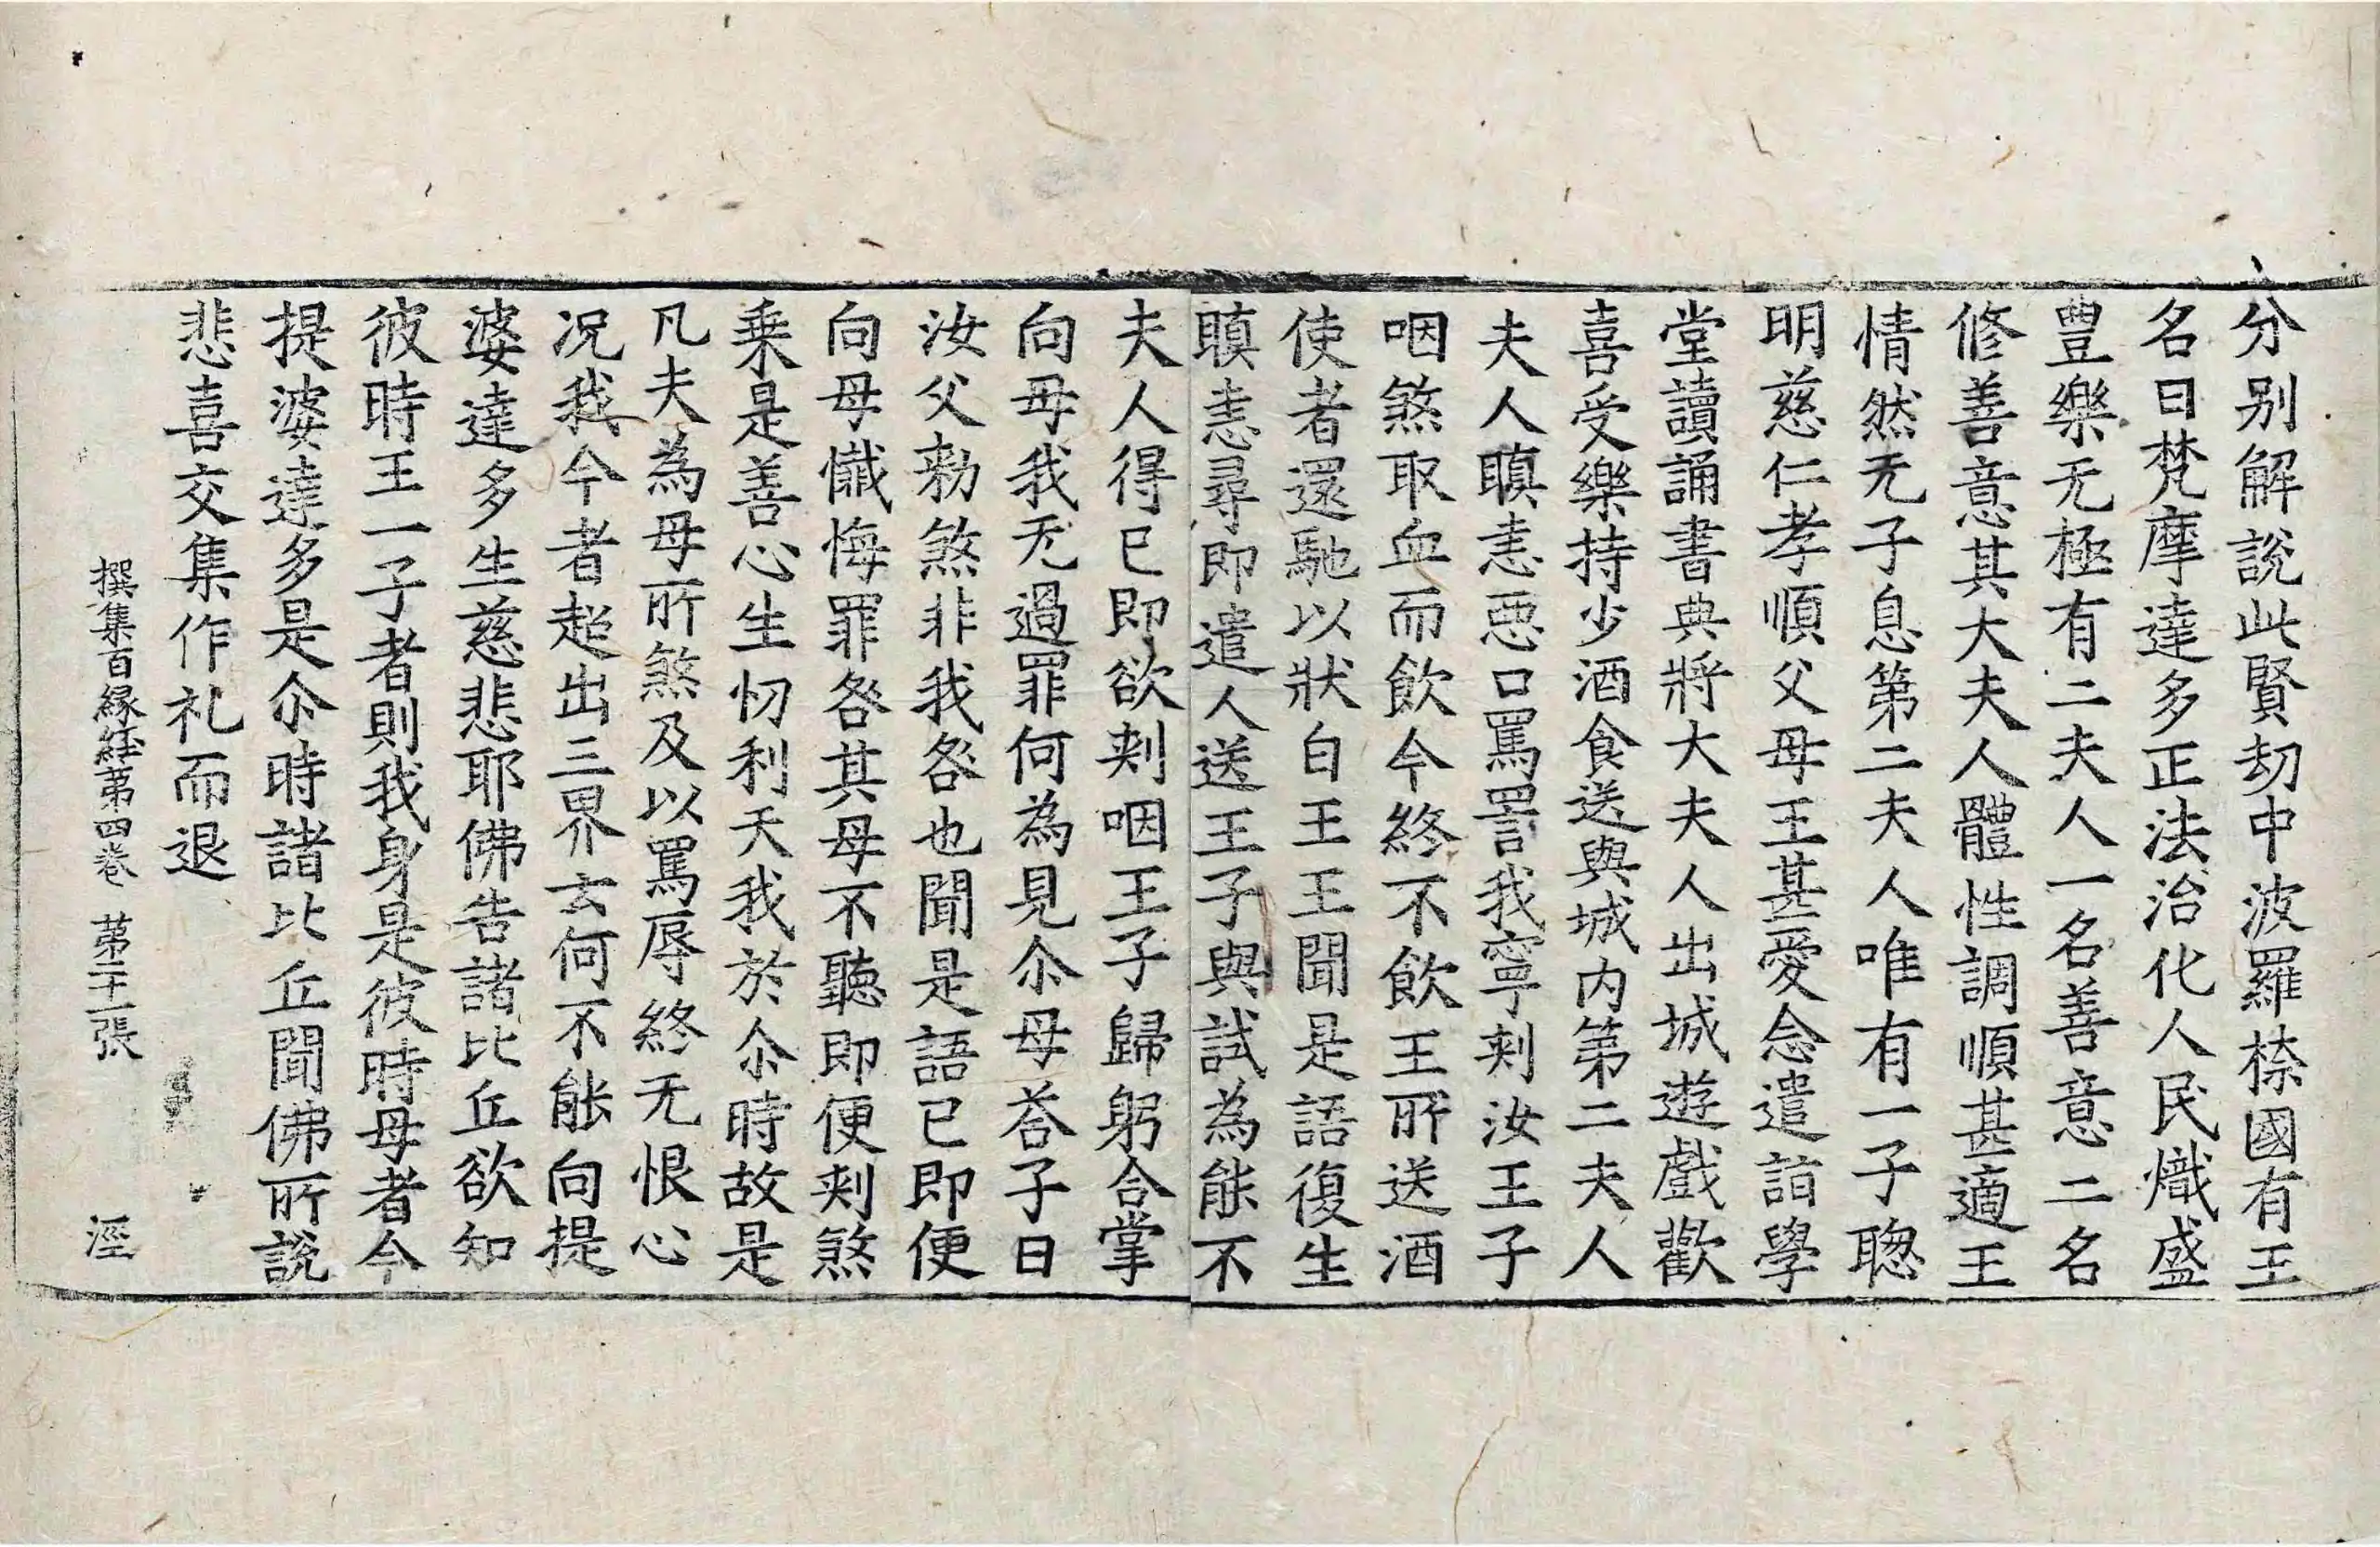 分别解說此賢劫中波羅㮈國有王
名曰梵摩達多正法治化人民熾盛
豊樂无極有二夫人一名善意二名
修善意其大夫人體性調順甚適王
情然无子息第二夫人唯有一子聦
明慈仁孝順父母王甚愛念遣詣學
堂讀誦書典將大夫人出城遊戲歡
喜受樂持少酒食送與城内第二夫人
夫人瞋恚惡口罵詈我寧刾汝王子
咽煞取血而飲今終不飲王所送酒
使者還馳以狀白王王聞是語復生
瞋恚尋即遣人送王子與試為能不
夫人得已即欲刾咽王子歸躬合掌
向母我无過罪何為見尒母荅子曰
汝父勑煞非我咎也聞是語已即便
向母懺悔罪咎其母不聽即便刾煞
乗是善心生忉利天我於尒時故是
凡夫為母所煞及以罵辱終无恨心
况我今者超出三界云何不能向提
婆達多生慈悲耶佛告諸比丘欲知
彼時王一子者則我身是彼時母者今
提婆達多是尒時諸比丘聞佛所說
悲喜交集作礼而退
撰集百縁経苐四卷 苐二十一張 涇